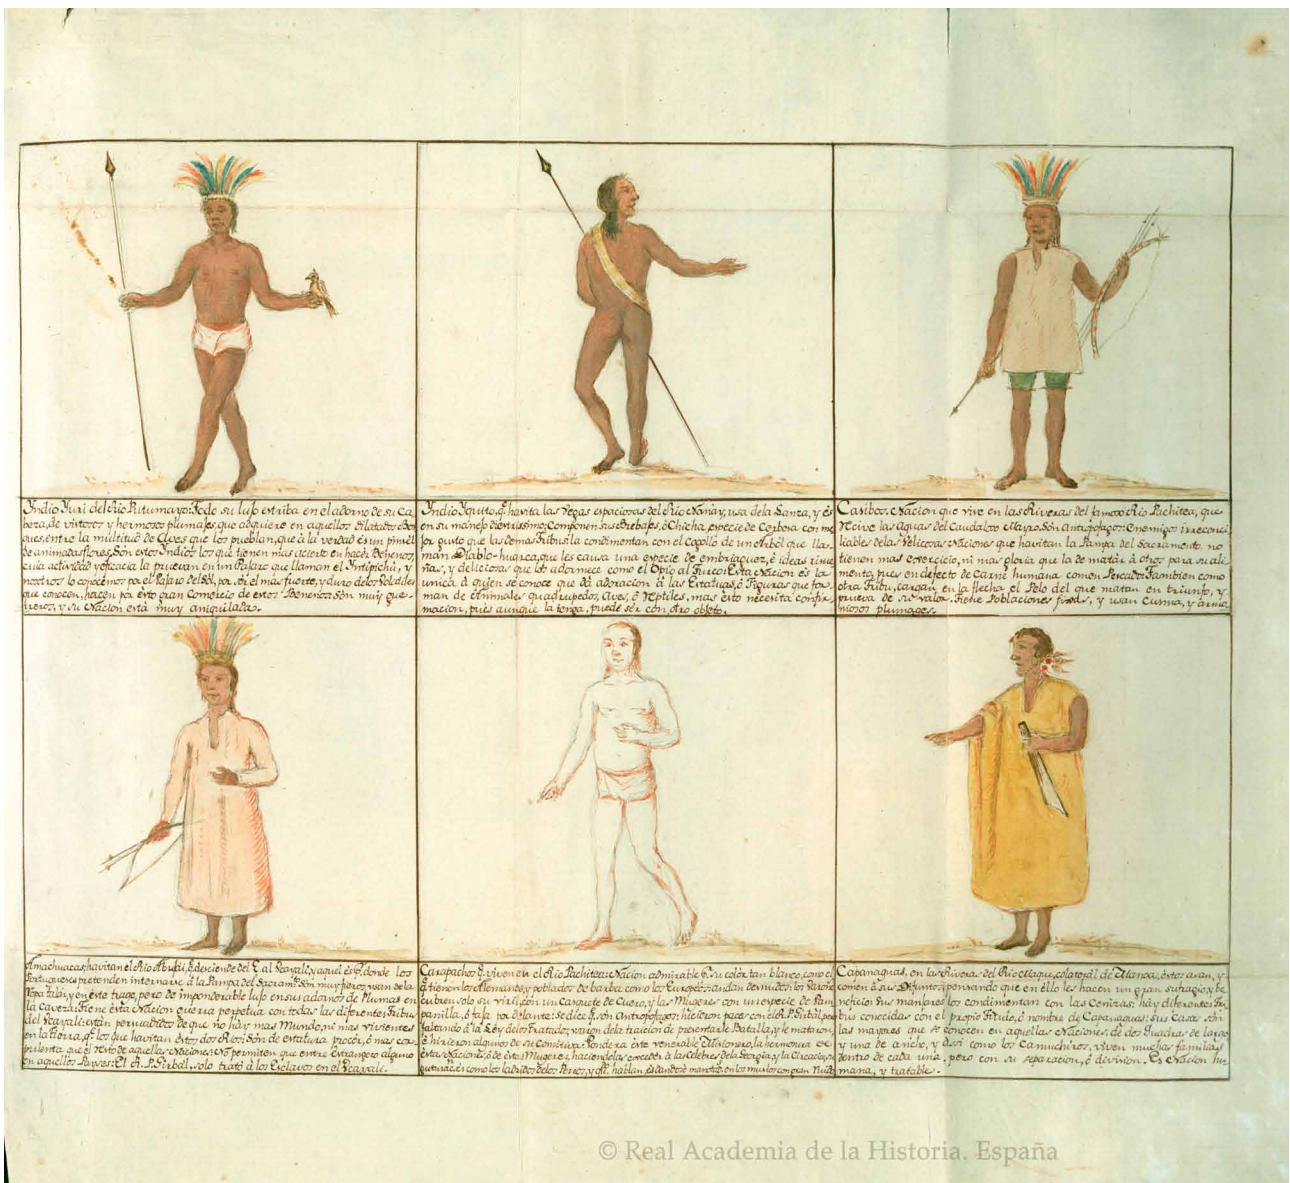 Yndio Yuri del Rio Putumayo: Todo su lujo estriba en el adorno de su Ca-
beza, de vistosos y hermosos plumajes, que adquiere en aquellos dilatados Bos-
ques, entre la multitud de Aves que los pueblan, que à la verdad es un pinsèl
de animadas flores. Son estos Indios los que tienen mas acierto en hacer Benenos,
cuia actividad y eficacia la pruevan en un Pajaro que llaman el Intipichú, y
nosotros lo conocemos por el Pajaro del Sòl, por ser el mas fuerte, y duro de los Volatiles
que conocen, hacen por esto gran Comercio de estos Benenos: Són muy gue-
rreros, y su Nacion està muy aniquilada.
Yndio Yquito, q.e havita las Vegas espaciosas del Rio Nanay, usa de la Lanza, y es
en su manejo diestrissimo; Componen sus Brebajes, ò Chicha, especie de Cerbeza con me
jor gusto que las demas Tribus: la condimentan con el Cogollo de un Arbol que lla-
man Diablo-huasca, que les causa una especie de embriaquez, è ideas risue
ñas, y deliciosas que los adormece como el Opio al Turco: Esta Nacion es la
unica à quien se conoce que dà adoracion à las Estatuas, ò Figuras que for-
man de Animales quadrupedos, Aves, ò Reptiles, mas esto necesita confir-
macion, pues aunque la tenga, puede sér con otro objeto.
Caribos. Nacion que vive en las Riveras del famoso Rio Pachitea, que
recive las aguas del Caudaloso Mayro. Són Antropofagos: Enemigos irreconci-
liables de las Velicosas Naciones que havitan la Pampa del Sacramento, no
tienen mas exercicio, ni mas gloria que la de matàr à otros para su ali-
mento, pues en defecto de Carne humana comen Pescado: Tambien como
otra Tribu, cargan en la flecha el Pelo del que matan en triunfo, y
prueva de su valor. Tiene Poblaciones fixas, y usan Cusma, y
hermosos plumages.
Amachuacas, havitan el Rio
Portugueses pretenden internarse à la Pampa del Sacram.to Són muy fieros, usan de la
Ropa talàr, y en este trage, pero de imponderable lujo en sus adornos de Plumas en
la Caveza: Tiene esta Nacion guerra perpetua con todas las diferentes Tribus
del Ucayali: están persuadidos de que no hay mas Mundo, ni mas vivientes
en la tierra, q.e los que havitan estos dos Rios: Són de estatura procèr, ò mas cor-
pulenta que el resto de aquellas Naciones: No permiten que entre Estrangero alguno
en aquellos Payses: El R. P. Girbàl, solo tratò à los Esclavos en el Ucayali.
Carapachos q.e viven en el Rio Pachitea: Nacion admirable p.r su color tan blanco, como el
q.e tienen los Alemanes, y poblados de barba, como los Europèos: andan desnudos: los Varone
cubren solo su viril, con un Casquete de Cuero, y las Mugeres con una especie de Pam
panilla, ò faja por delante: se dice q.e són Antropofagos: hicieron paces con el R. P. Girbàl, pero
faltando à la Ley de los Tratados, usaron de la traicion de presentarle Batalla, y le mataron,
è hirieron algunos de su Comitiva: Pondera este venerable Missionero, la hermosura de
estas Naciones, ò de estas Mugeres, haciendolas exceder à las Celebres de la Georgia, y la Circasia;
es como los ladridos de los Perros, y q.do hablan,
Capanaguas, en las Riveras del Rio Maqui, colateràl de Alanoa, èstos asan, y
comen à sus Difuntos, pensando que en ello les hacen un gran sufragio, y be
neficio: Sus manjares los condimentan con las Cenizas: hay diferentes Tri-
bus conocidas con el propio Titulo, ò nombre de Capanaguas: Sus Casas són
las mayores que se conocen en aquellas Naciones, de dos Quadras de largo
y una de ancho, y assi como los Camuchiros, viven muchas familias
dentro de cada una, pero con su separacion, ò division. Es Nacion hu-
mana, y tratable.
© Real Academia de la Historia. España